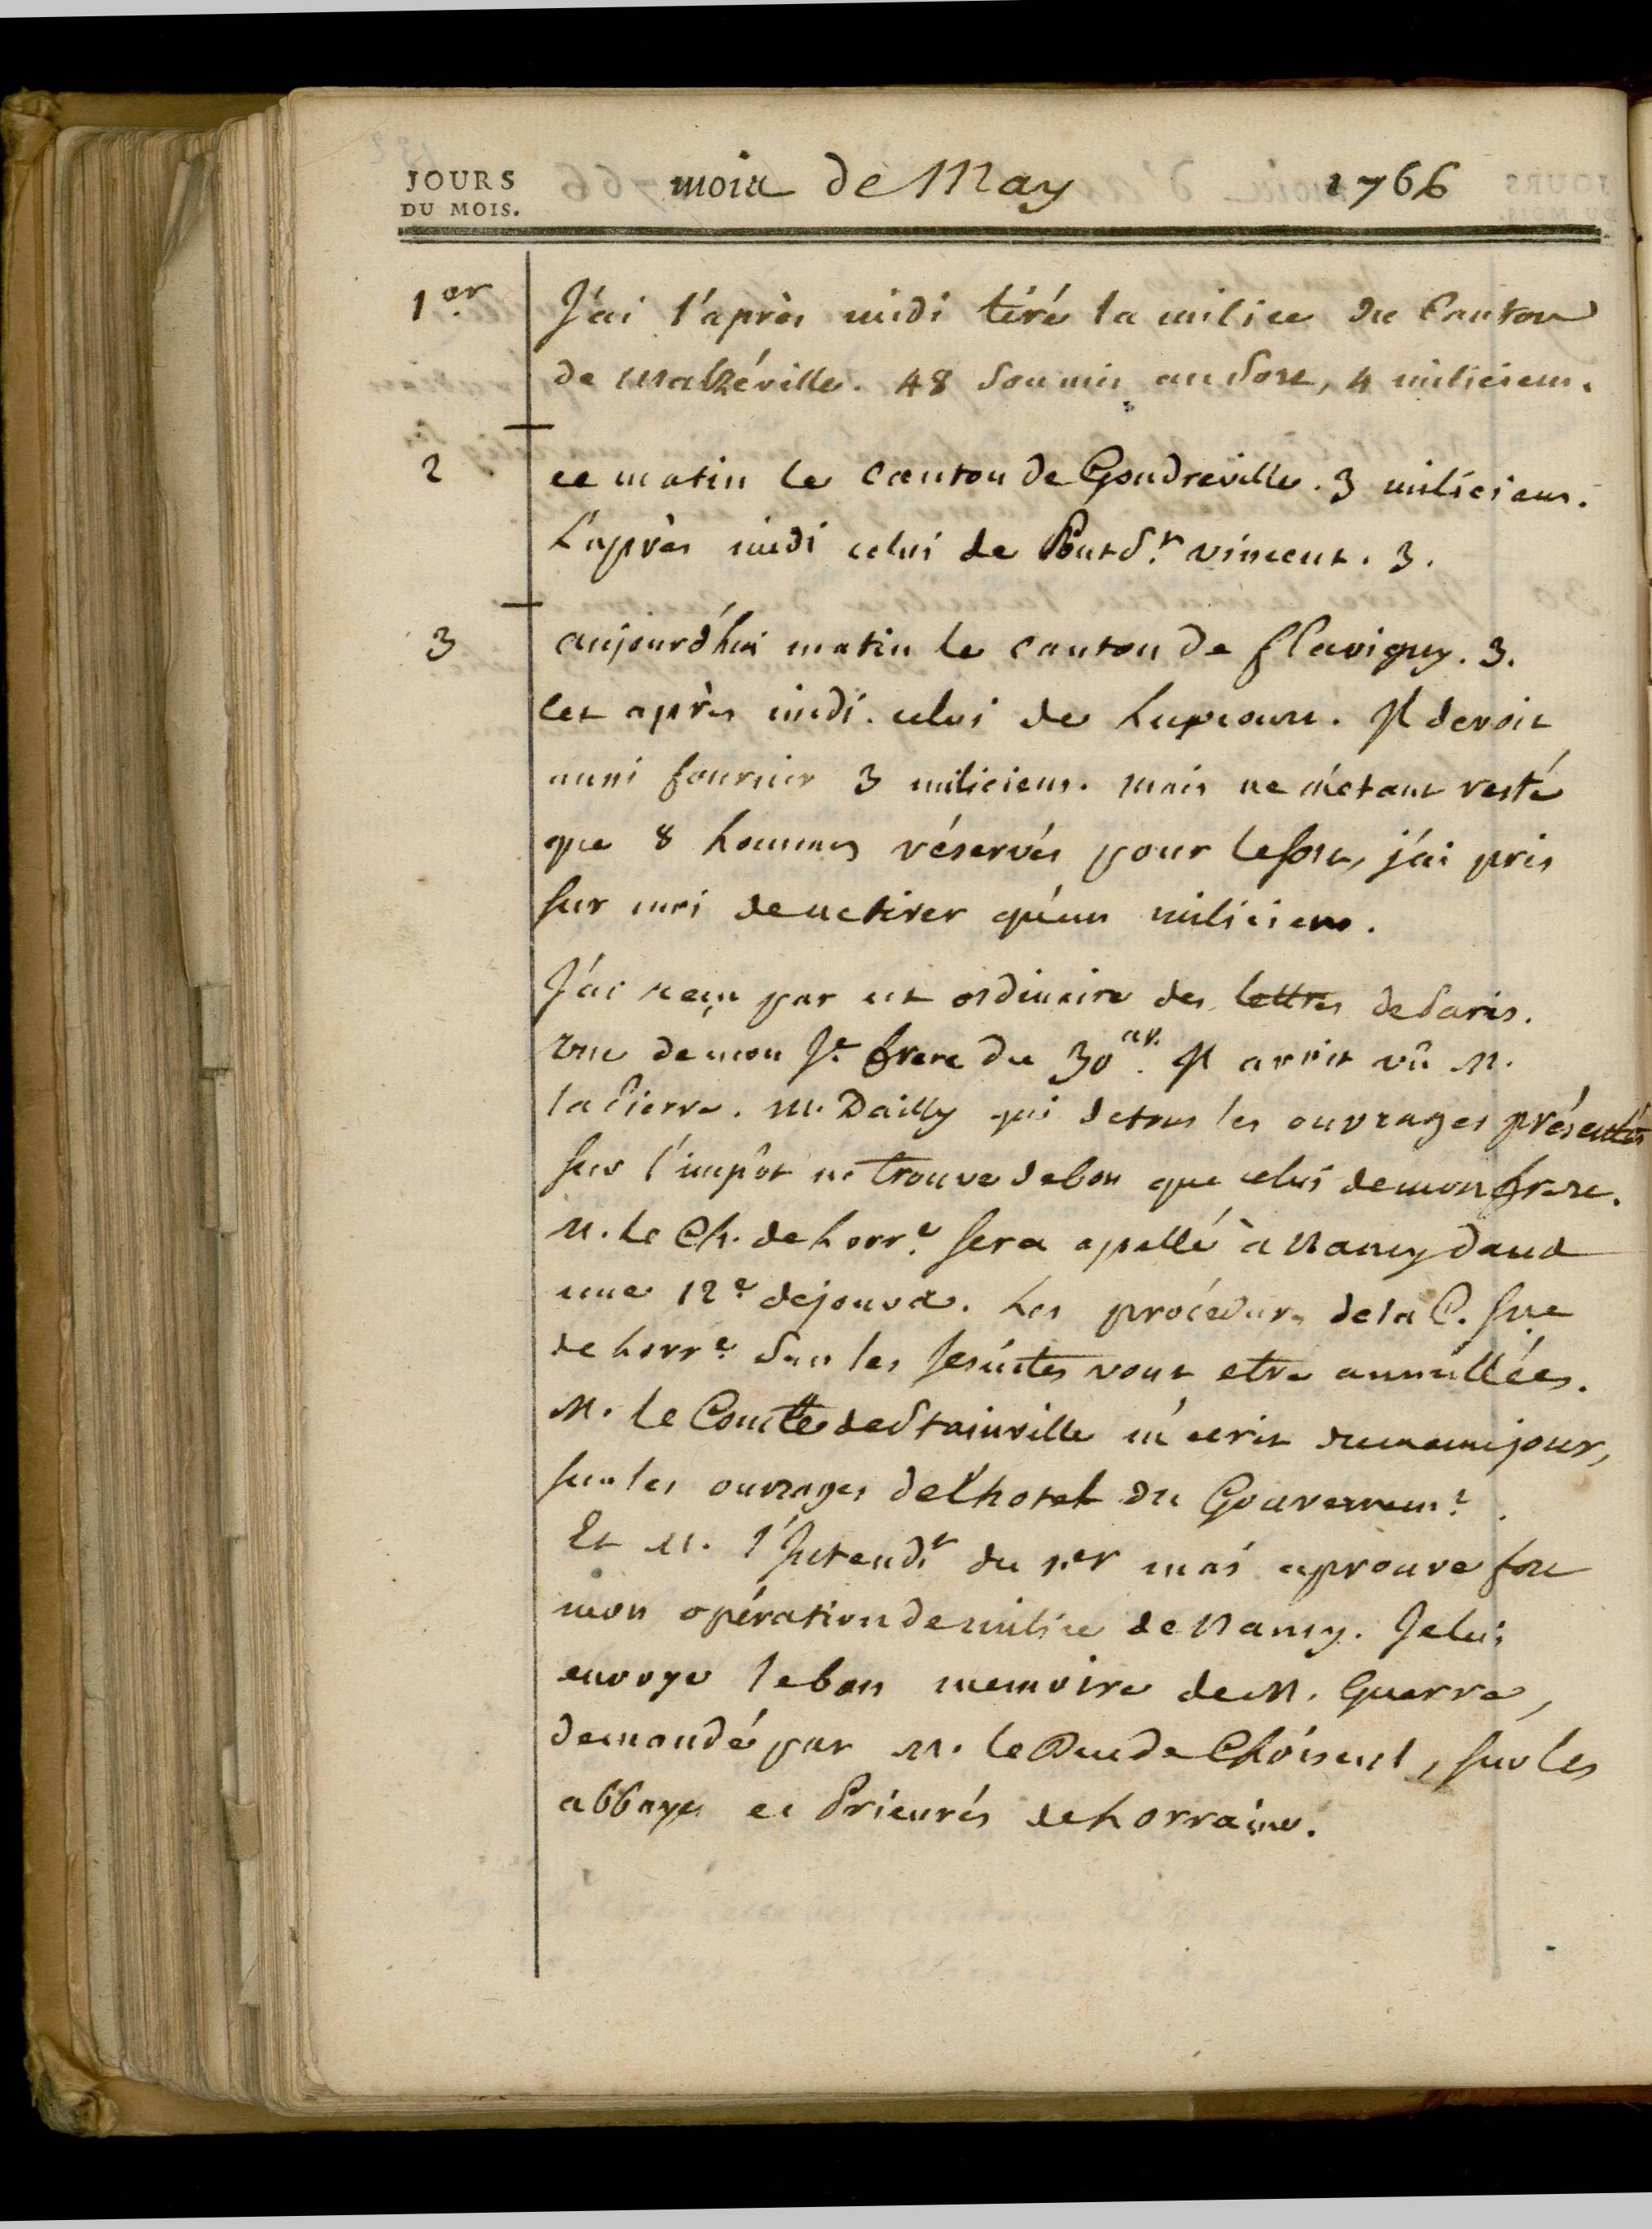 JOURS
DU MOIS.
mois de May 1766
1er J'ai l'après midi tiré la milice du Canton
de Malzéville. 48 soumis au sort, 4 miliciens.
2 ce matin le canton de Gondreville. 3 miliciens.
L'après midi celui de Pont St vincent. 3.
3 aujourd'hui matin le canton de flavigny. 3.
cet après midi celui de Lupcourt. Il devoit
aussi fournir 3 miliciens. mais ne m'étant resté
que 8 hommes réservés pour le sort, j'ai pris
sur moi de ne tirer qu'un milicien.
J'ai reçu par cet ordinaire des lettres de Paris.
Une de mon frere du 30 av. Il avoit vû M.
la Pierre. M. Dailly qui de tous les ouvrages présentés
sur l'impôt ne trouve de bon que celui de mon frere.
M. le Ch. de Lorre sera apellé à Nancy dans
une 12e de jours. Les procédures de la C. sne
de Lorre sur les Jesuites vont etre annullées.
M. le Comte de Stainville m'écrit du meme jour,
sur les ouvrages de l'hotel du Gouvernemt.
Et M. l'Intendt du 1er mai aprouve fort
mon opération de milice de Nancy. Je lui
envoye le bon memoire de M. Guerre,
demandé par M. le Duc de Choiseul, sur les
abbayes et Prieurés de Lorraine.